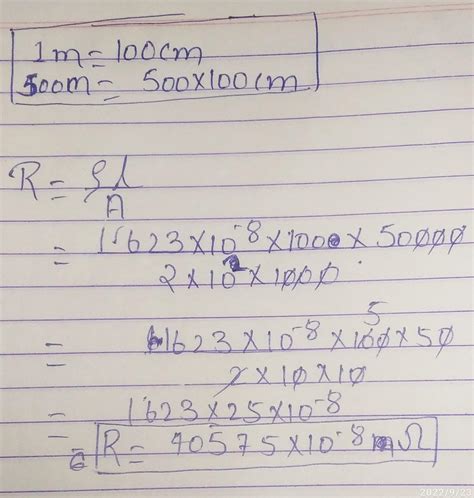 1m = 100cm
500m = 500x100cm
R = ρl
A
= 1.623x10^-8 x 1000 x 50000
2x10^2 x 1000
5
= 1623x10^-8 x 100 x 50
2x10x10
= 1623x25x10^-8
= R = 40575x10^-8 Ω
2022/9/23